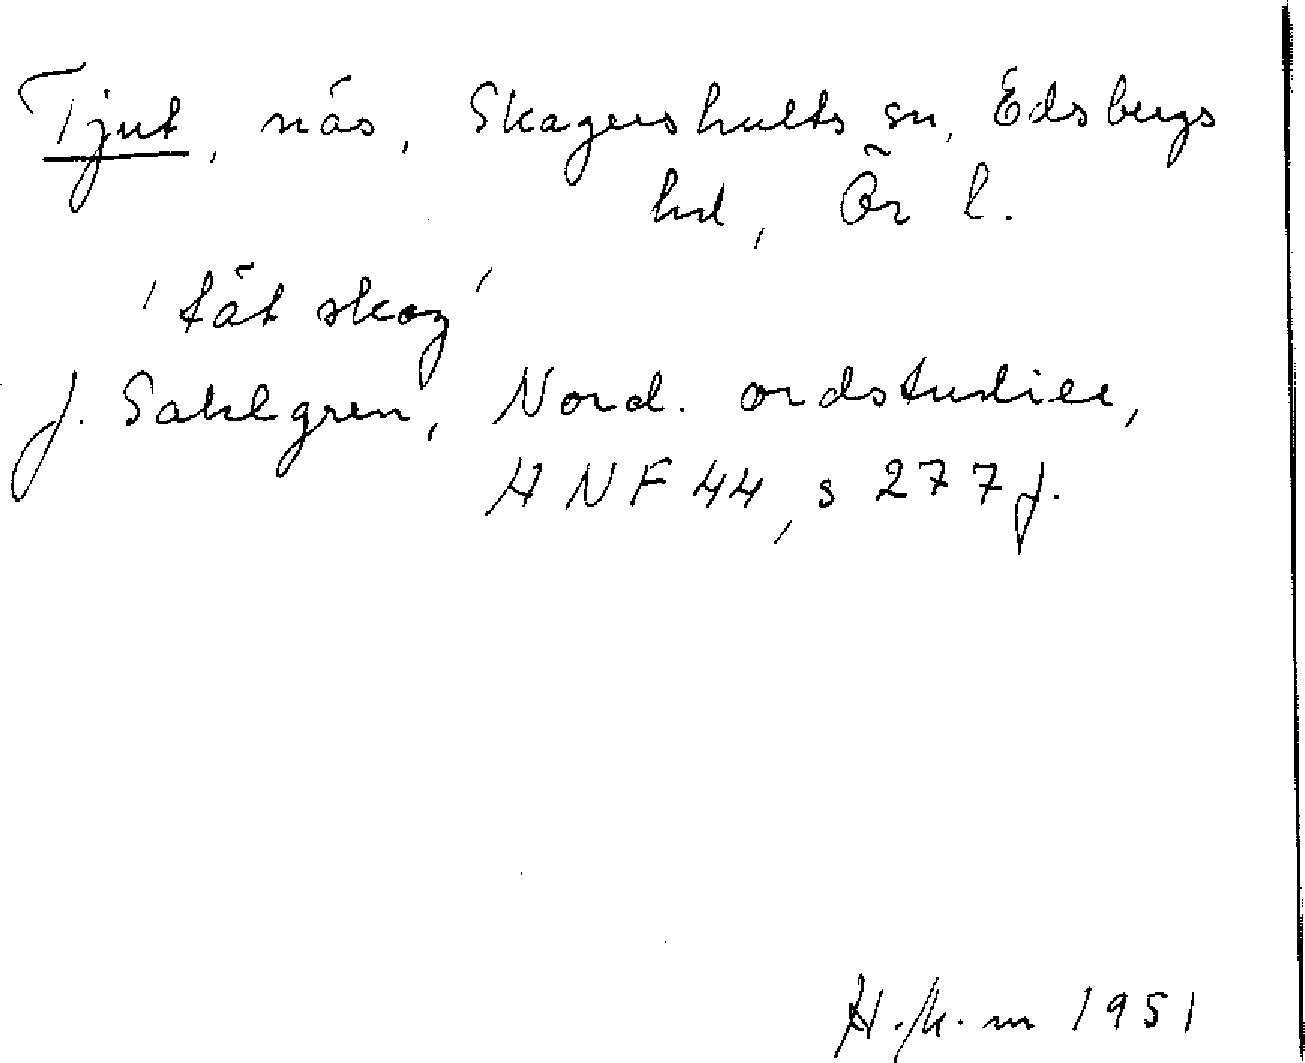 Tjut, näs, Skagershults sn, Edsbergs
hd, Ör l.
'tät skog'
J. Sahlgren, Nord. ordstudier,
ANF 44, s 277 f.
1951